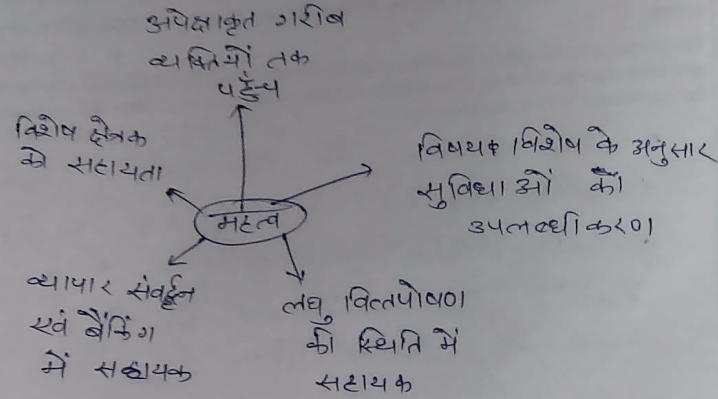 अपेक्षाकृत गरीब
व्यक्तियों तक
पहुँच
विशेष क्षेत्रक
को सहायता
विषयक विशेष के अनुसार
सुविधाओं की
उपलब्धीकरण
महत्व
व्यापार संवर्द्धन
एवं बैंकिंग
में सहायक
लघु वित्तपोषण
की स्थिति में
सहायक